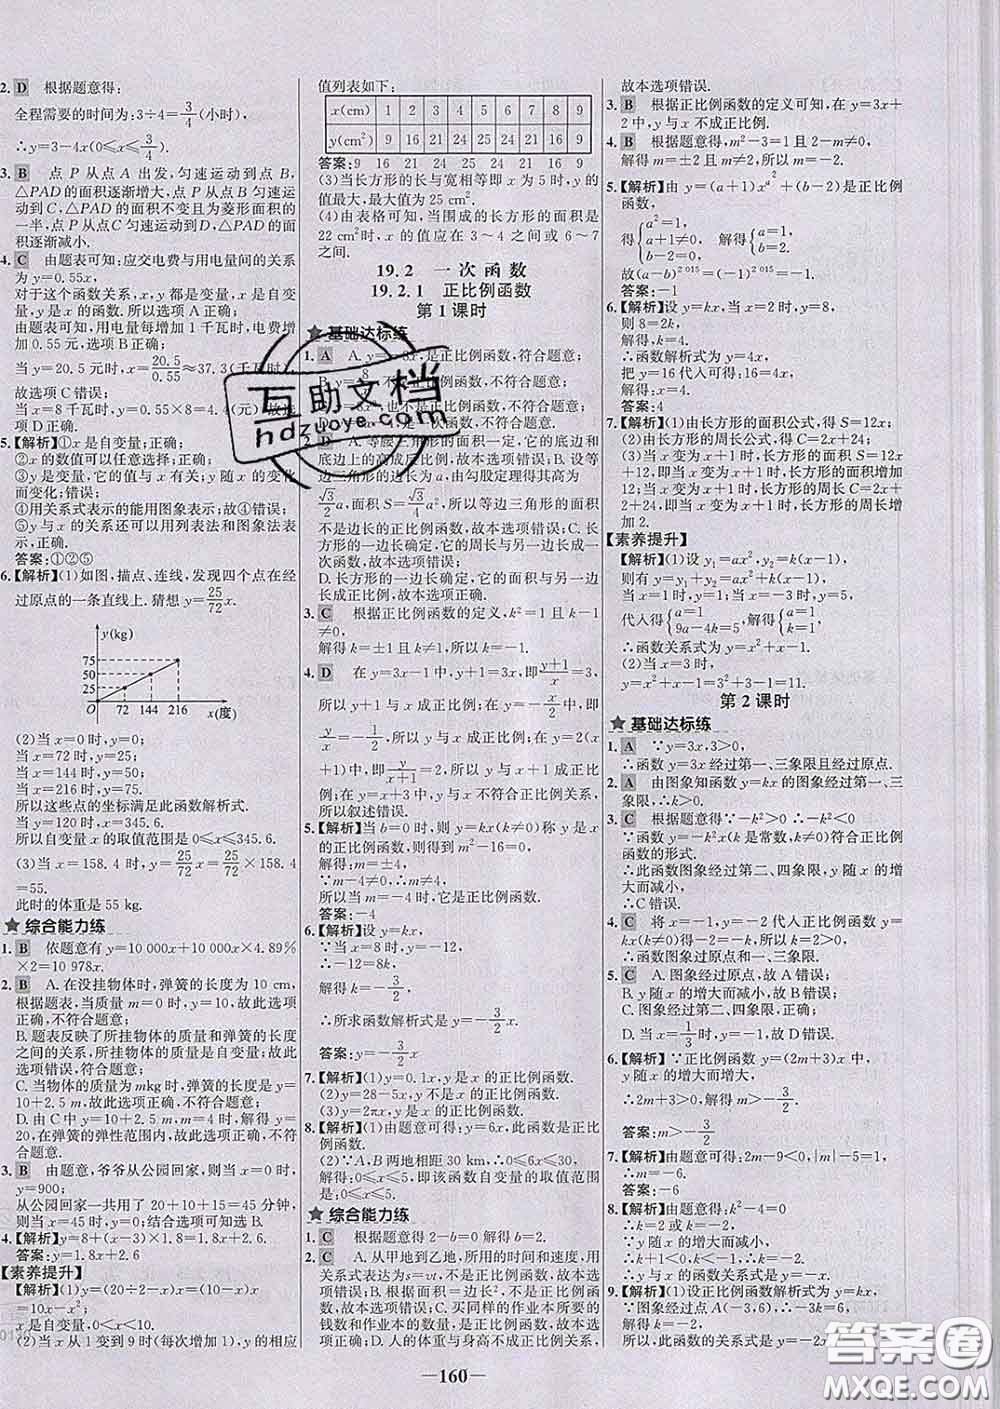 2. D 根据题意得:
全程需要的时间为:3÷4=3/4(小时)
∴y=3-4x(0≤x≤3/4).
3. B 点 P 从点 A 出发,匀速运动到点 B,
△PAD的面积逐渐增大,点 P 从点 B 匀速运
动到 C,△PAD 的面积不变且为菱形面积的
一半,点 P 从点C 匀速运动到D,△PAD的面
积逐渐减小.
4. C 由题表可知:应交电费与用电量间的关系
为 y=0.55x.
对于这个函数关系,x,y 都是变量,x 是自变
量,y 是 x 的函数.所以选项 A 正确;
由题表可知,用电量每增加 1 千瓦时,电费增
加 0.55 元,故选项 B 正确;
当 y=20.5 元时,x=20.5/0.55≈37.3(千瓦时),
故选项 C 错误;
当 x=8 千瓦时,y=0.55×8=4.4(元),故选
项 D正确.
5.【解析】①x 是自变量;正确;
②x 的数值可以任意选择;正确;
③y 是变量,它的值与 x 有关;y 随 x 的变化
而变化;错误;
④用关系式表示的能用图象表示;故④错误;
⑤y 与 x 的关系还可以用列表法和图象法表
示,正确.
答案:①②⑤
6.【解析】(1)如图,描点、连线,发现四个点在经
过原点的一条直线上.猜想 y=25/72x.
y(kg)
75
50
25
O 72 144 216 x(度)
(2)当 x=0 时,y=0;
当 x=72 时,y=25;
当 x=144 时,y=50;
当 x=216 时,y=75.
所以这些点的坐标满足此函数解析式.
当 y=120 时,x=345.6,
所以自变量 x 的取值范围是 0≤x≤345.6.
(3)当 x=158.4 时,y=25/72x=25/72×158.4
=55.
此时的体重是 55 kg.
★综合能力练
1. B 依题意有 y=10 000x+10 000x×4.89%
×2=10 978x.
2. B A.在没挂物体时,弹簧的长度为 10 cm,
根据题表,当质量 m=0 时,y=10,故此选项
正确,不符合题意;
B.题表反映了所挂物体的质量和弹簧的长度
之间的关系,所挂物体的质量是自变量;故此
选项错误,符合题意;
C.当物体的质量为mkg时,弹簧的长度是 y=
10+2.5 m,故此选项正确,不符合题意;
D.由 C 中 y=10+2.5 m,m=4,解得 y=
20,在弹簧的弹性范围内,故此选项正确,不符
合题意.
3. B 由题意,爷爷从公园回家,则当 x=0 时,
y=900;
从公园回家一共用了 20+10+15=45 分钟,
则当 x=45 时,y=0;结合选项可知选 B.
4.【解析】y=8+(x-3)×1.8=1.8x+2.6
答案:y=1.8x+2.6
【素养提升】
【解析】(1)y=(20÷2-x)x=(10-x)x
=10x-x²;
x 是自变量,0<x<10.
(2)当 x 从 1 变到 9 时(每次增加 1),y 的相应
值列表如下:
x(cm) 1 2 3 4 5 6 7 8 9
y(cm²) 9 16 21 24 25 24 21 16 9
答案:9 16 21 24 25 24 21 16 9
(3)当长方形的长与宽相等即 x 为 5 时,y 的
值最大,最大值为 25 cm².
(4)由表格可知,当围成的长方形的面积是
22 cm² 时,x 的值应在 3~4 之间或 6~7
之间.
19.2 一次函数
19.2.1 正比例函数
第 1 课时
★基础达标练
互助文档
hdzuoye.com
底边上的高成反比例,故本选项错误;B.设等
边三角形的边长为 a,由勾股定理得其高为
√3/2a,面积 S=√3/4a²,所以等边三角形的面积
不是边长的正比例函数,故本选项错误;C.长
方形的一边长确定,它的周长与另一边长成一
次函数,故本选项错误;
D.长方形的一边长确定,它的面积与另一边
长成正比例函数,故本选项正确.
3. C 根据正比例函数的定义,k²=1且 k-1
≠0.
解得 k=±1且 k≠1,所以 k=-1.
4. D 在 y=3x-1 中,y+1=3x,即(y+1)/x=3,
所以 y+1 与 x 成正比例;在 y=-x/2 中,
y/x=-1/2,所以 y 与 x 成正比例;在 y=2(x
+1)中,即 y/(x+1)=2,所以 y 与 x+1 成正比
例;在 y=x+3 中,y 与 x 不符合正比例关系,
所以叙述错误.
5.【解析】当 b=0 时,y=kx(k≠0)称 y 是 x
的正比例函数,则得到 m²-16=0,
解得:m=±4,
∵m-4≠0,∴m≠4.
所以当 m=-4 时,y 是 x 的正比例函数.
答案:-4
6.【解析】设 y=kx,
∵当 x=8 时,y=-12,
∴-12=8k,
解得 k=-3/2,
∴所求函数解析式是 y=-3/2x.
答案:y=-3/2x
7.【解析】(1)y=0.1x,y 是 x 的正比例函数.
(2)y=28-5x,y 不是 x 的正比例函数.
(3)y=2πx,y 是 x 的正比例函数.
8.【解析】(1)由题意可得:y=6x,此函数是正比
例函数.
(2)∵A,B 两地相距 30 km,∴0≤6x≤30,
解得:0≤x≤5,即该函数自变量的取值范围
是:0≤x≤5.
★综合能力练
1. C 根据题意 2-b=0 解得 b=2.
2. C A.从甲地到乙地,所用的时间和速度,用
关系式表达为s=vt,不是正比例函数,故本选项
错误;B.根据面积=边长²,不是正比例函数,故
本选项错误;C.买同样的作业本所要的
钱数和作业本的数量,是正比例函数,故本选
项正确;D.人的体重与身高不成正比例关系,
故本选项错误.
3. B 根据正比例函数的定义可知,在 y=3x+
2中,y 与 x 不成正比例.
4. B 根据题意得:m²-3=1且 m-2≠0,
解得 m=±2 且 m≠2,所以 m=-2.
5.【解析】由 y=(a+1)x^(a²)+(b-2)是正比例
函数,
得{a²=1 b-2=0 a+1≠0 解得{a=1 b=2.
故(a-b)^2 015=(1-2)^2 015=-1.
答案:-1
6.【解析】设 y=kx,当 x=2 时,y=8,
则 8=2k,
解得,k=4.
∴函数解析式为 y=4x,
把 y=16 代入可得:16=4x,
解得,x=4.
答案:4
7.【解析】(1)由长方形的面积公式,得 S=12x;
(2)由长方形的周长公式,得 C=2x+24;
(3)当 x 变为 x+1 时,长方形的面积变为
12(x+1)=12x+12,即长方形的面积增加
12;当 x 变为 x+1 时,长方形的周长变为2x+
2+24,即当 x 变为 x+1 时,长方形的周长增
加 2.
【素养提升】
【解析】(1)设 y₁=ax²,y₂=k(x-1),
则有 y=y₁+y₂=ax²+k(x-1).
当 x=1时,y=1;当 x=-3时,y=5,
代入得{a=1 9a-4k=5,解得{a=1 k=1.
∴函数关系式为 y=x²+x-1.
(2)当 x=3 时,
y=x²+x-1=3²+3-1=11.
第 2 课时
★基础达标练
1. A ∵y=3x,3>0,
∴函数 y=3x 经过第一、三象限且经过原点.
2. A 由图象知函数 y=kx 的图象经过第一、三
象限,∴k>0.
3. C 根据题意得∵-k²≠0 ∴-k²<0
∵函数 y=-k²x(k 是常数,k≠0)符合正比例
函数的形式.
∴此函数图象经过第二、四象限,y 随 x 的增
大而减小,
∴C错误.
4. C 将 x=-1,y=-2 代入正比例函数 y=
kx(k≠0)得,-2=-k,解得 k=2>0,
∴函数图象经过原点和一、三象限.
5. C A.图象经过原点,故 A 错误;
B.y 随 x 的增大而减小,故 B 错误;
C.图象经过第二、四象限,故 C 正确;
D.当 x=1/3时,y=-1,故 D 错误.
6.【解析】∵正比例函数 y=(2m+3)x 中,
y 随 x 的增大而增大,
∴2m+3>0,解得 m>-3/2.
答案:m>-3/2
7.【解析】由题意可得:2m-9<0,|m|-5=1,
∴m=-6.
答案:-6
8.【解析】由题意得:k²-4=0
9.【解析】(1)设正比例函数解析式为 y=kx,
∵图象过点 A(-3,6),∴
所以,此函数的关系式是 y=-2x
—160—
答案圈
MXQE.COM